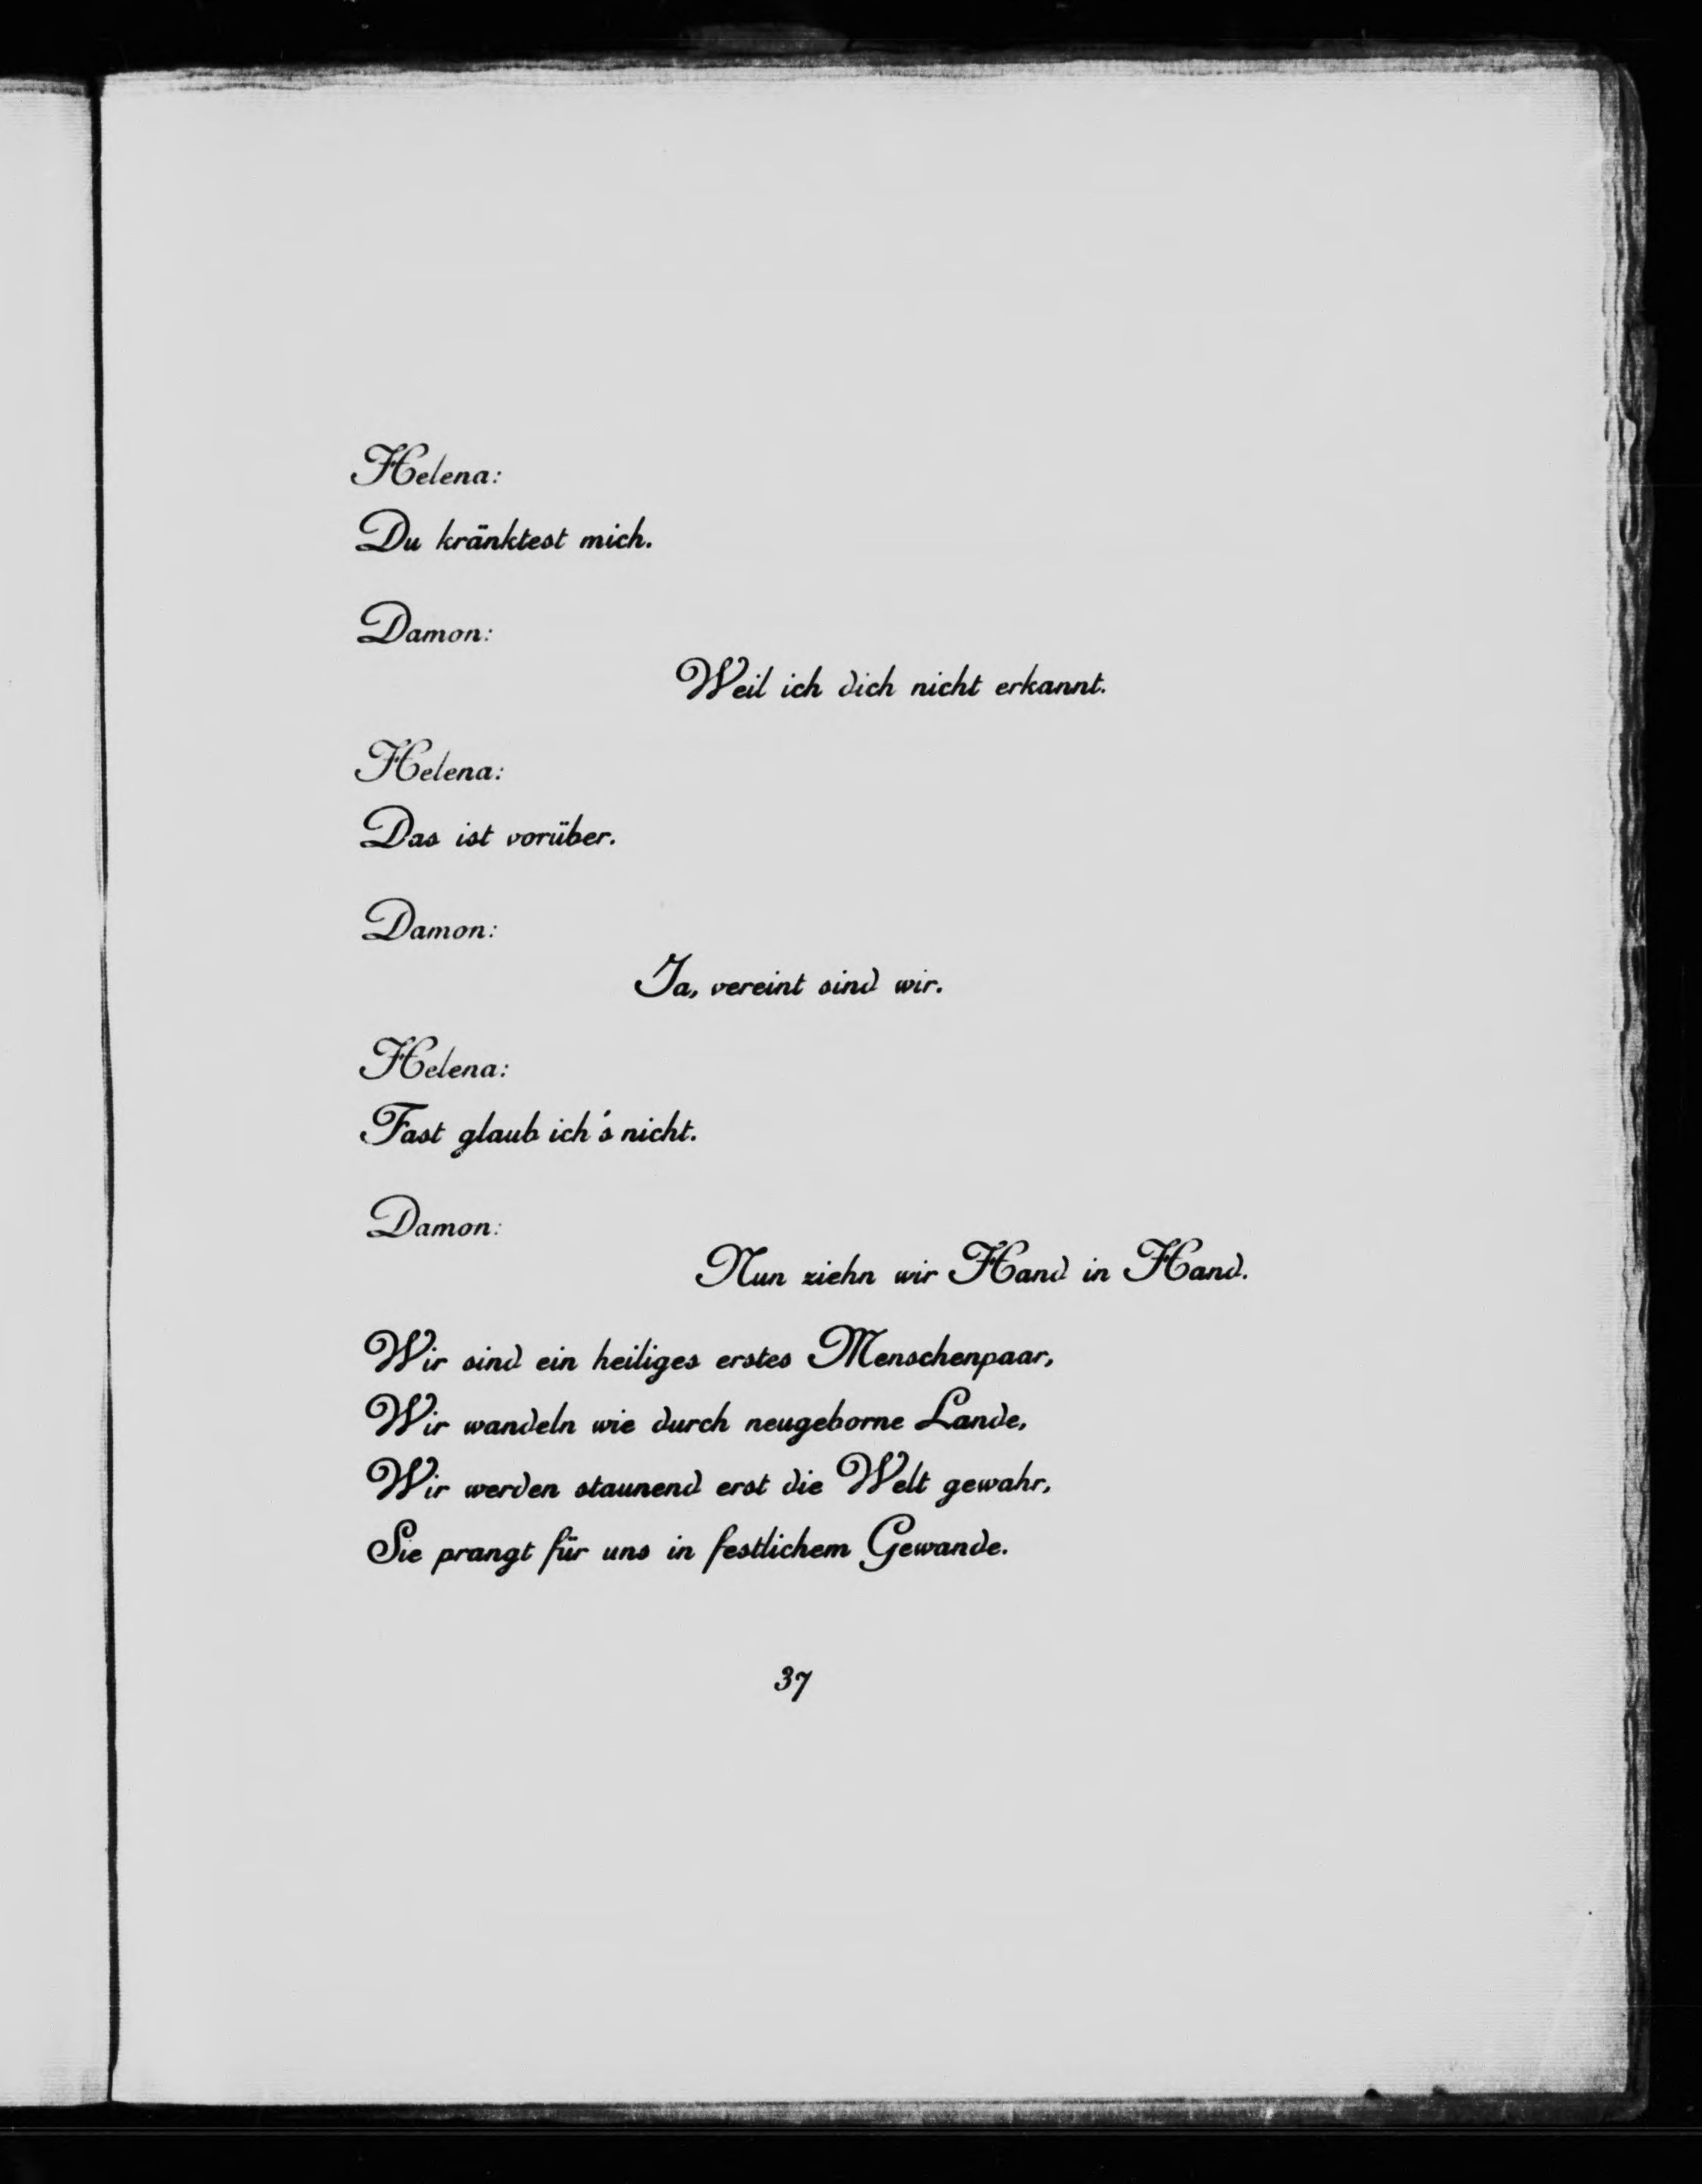 Helena:
Du kränktest mich.
Damon:
Weil ich dich nicht erkannt.
Helena:
Das ist vorüber.
Damon:
Ja, vereint sind wir.
Helena:
Fast glaub ich's nicht.
Damon:
Nun ziehn wir Hand in Hand.
Wir sind ein heiliges erstes Menschenpaar,
Wir wandeln wie durch neugeborne Lande,
Wir werden staunend erst die Welt gewahr,
Sie prangt für uns in festlichem Gewande.
37